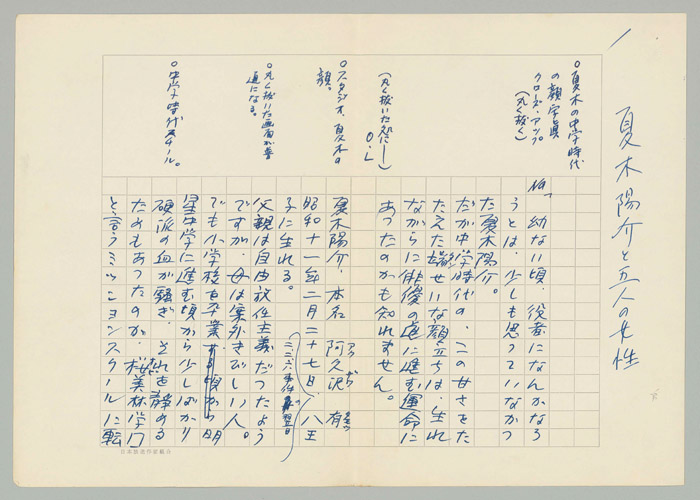 夏木陽介と五人の女性
○夏木の中学時代
の顔写真
クローズ・アップ
(丸く抜く)
NA 幼ない頃 役者になんかなろ
うとは、少しも思っていなかっ
た夏木陽介。
だが中学時代の、この甘さをた
たえた端せいな顔立ちは、生れ
ながらに俳優の道に進む運命に
あったのかも知れません。
(丸く抜いた処に―)
O・L
○スタジオ、夏木の
顔。
夏木陽介、本名 阿久沢 有
アクザワ
昭和十一年二月二十七日、八王
二・二六事件の翌日
子に生れる。
○丸く抜いた画面が普
通になる。
父親は自由放任主義だったよう
ですが、母は案外きびしい人。
でも小学校を卒業する頃から明
○中学時代スチール。
星中学に進む頃から少しばかり
硬派の血が騒ぎ、それを静める
ためもあったのか、桜美林学園
と言うミッションスクールに転
日本放送作家組合